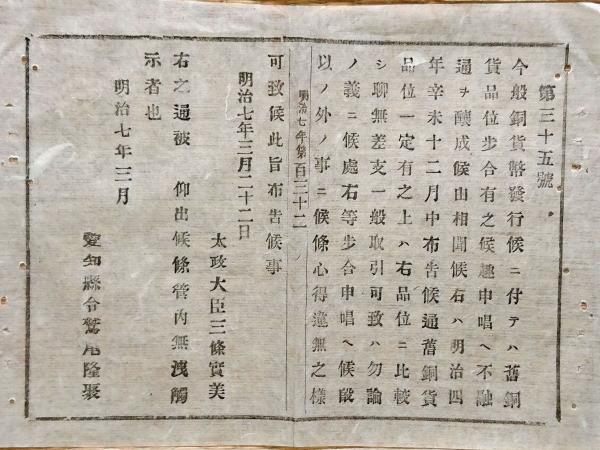 第三十五號
今般銅貨幣發行候ニ付テハ舊銅
貨品位步合有之候趣申唱ヘ不融
通ヲ釀成候由相聞候右ハ明治四
年辛未十二月中布告候通舊銅貨
品位一定有之上ハ右品位ニ比較
シ聊無差支一般取引可致ハ勿論
ノ義ニ候處右等步合申唱ヘ候段
以ノ外ノ事ニ候條心得違無之樣
明治七年第百三十二
可致候此旨布告候事
明治七年三月二十二日
太政大臣三條實美
右之通被 仰出候條管內無洩觸
示者也
明治七年三月
愛知縣令鷲尾隆聚